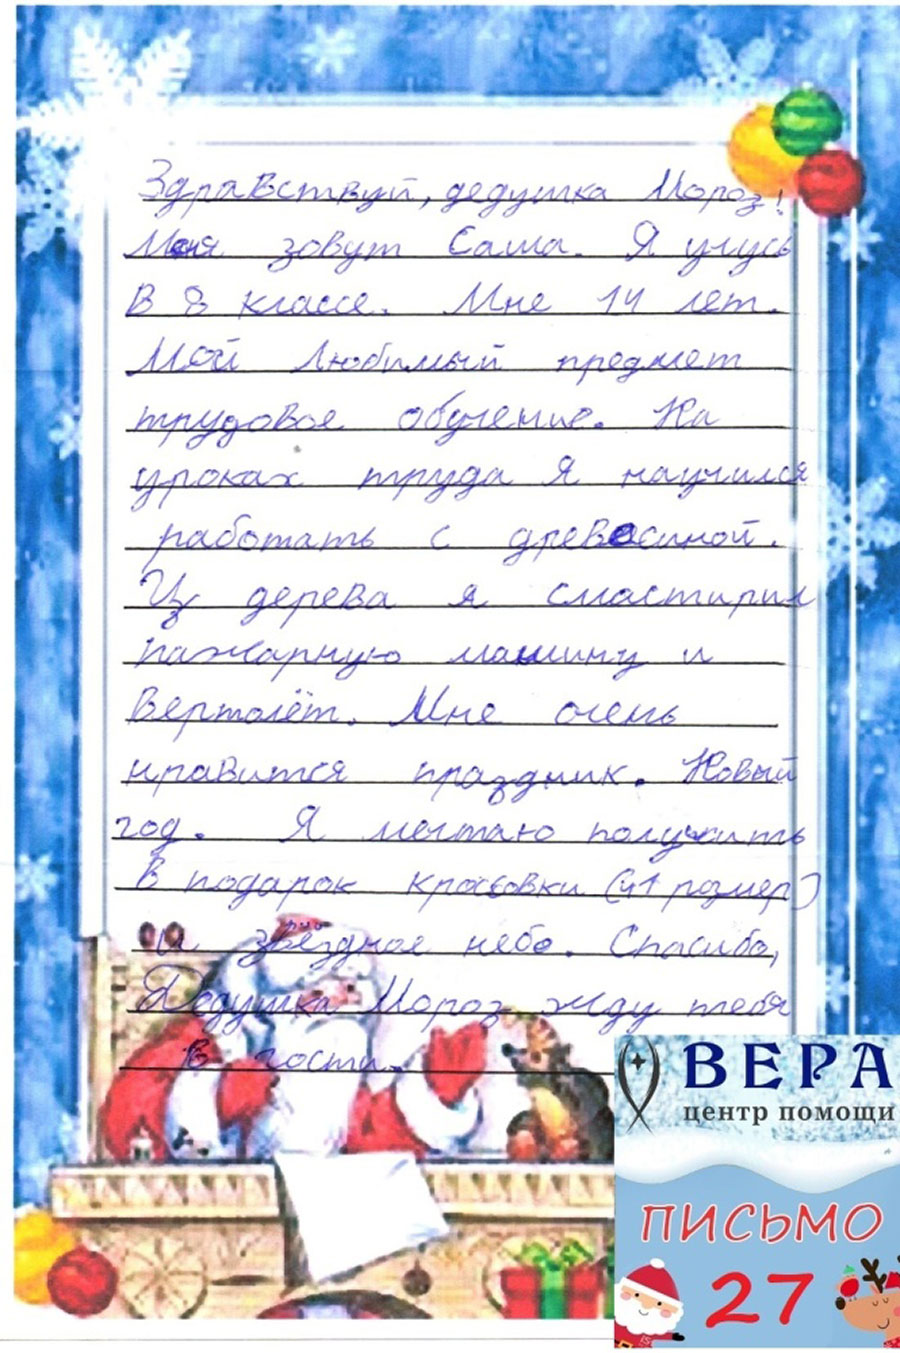 Здравствуй, дедушка Мороз!
Меня зовут Саша. Я учусь
в 8 классе. Мне 14 лет.
Мой любимый предмет
трудовое обучение. На
уроках труда я научился
работать с древесиной.
Из дерева я смастирил
пажарную машину и
вертолёт. Мне очень
нравится праздник. Новый
год. Я мечтаю получить
в подарок кросовки (41 розмер)
и звёздное небо. Спасибо,
Дедушка Мороз жду тебя
в гости.
ВЕРА
центр помощи
ПИСЬМО
27